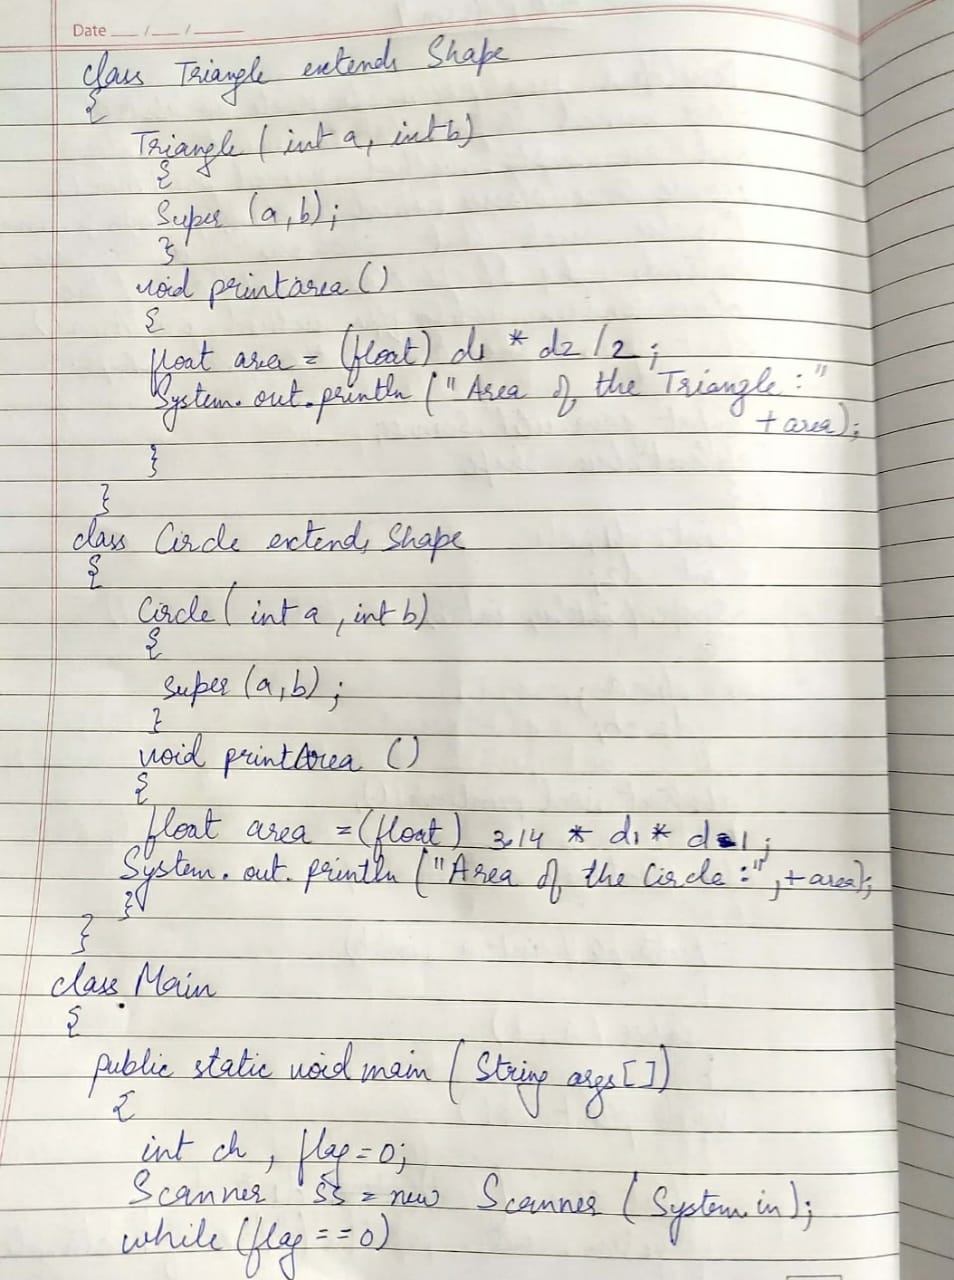 Date __/__/____
class Triangle extends Shape
{
Triangle (int a, int b)
{
Super (a,b);
}
void printarea ()
{
float area = (float) d1 * d2 /2;
System.out.println ("Area of the Triangle :"
+ area);
}
}
class Circle extends Shape
{
Circle (int a, int b)
{
super (a,b);
}
void printArea ()
{
float area = (float) 3.14 * d1 * d1;
System.out.println ("Area of the Circle :", + area);
}
}
class Main
{
public static void main (String args [])
{
int ch, flag = 0;
Scanner ss = new Scanner (System.in);
while (flag == 0)